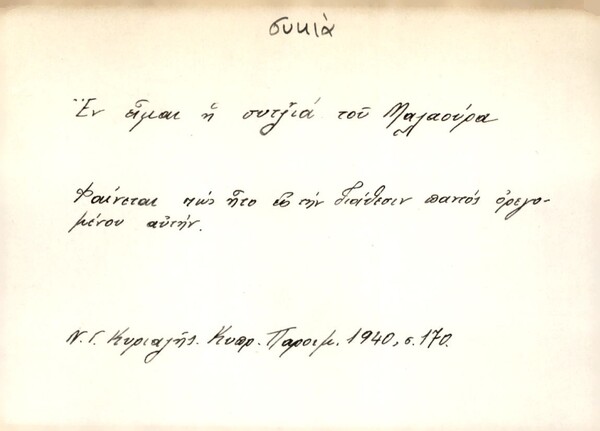 συκιά
Ἔν εἶμαι ἡ συτζ̌ιά τοῦ Μαλαούρα
Φαίνεται πώς ἦτο εἰς τήν διάθεσιν παντός ὀρεγο-
μένου αὐτήν.
Ν. Γ. Κυριαζῆς. Κυπρ. Παροιμ. 1940, σ. 170.